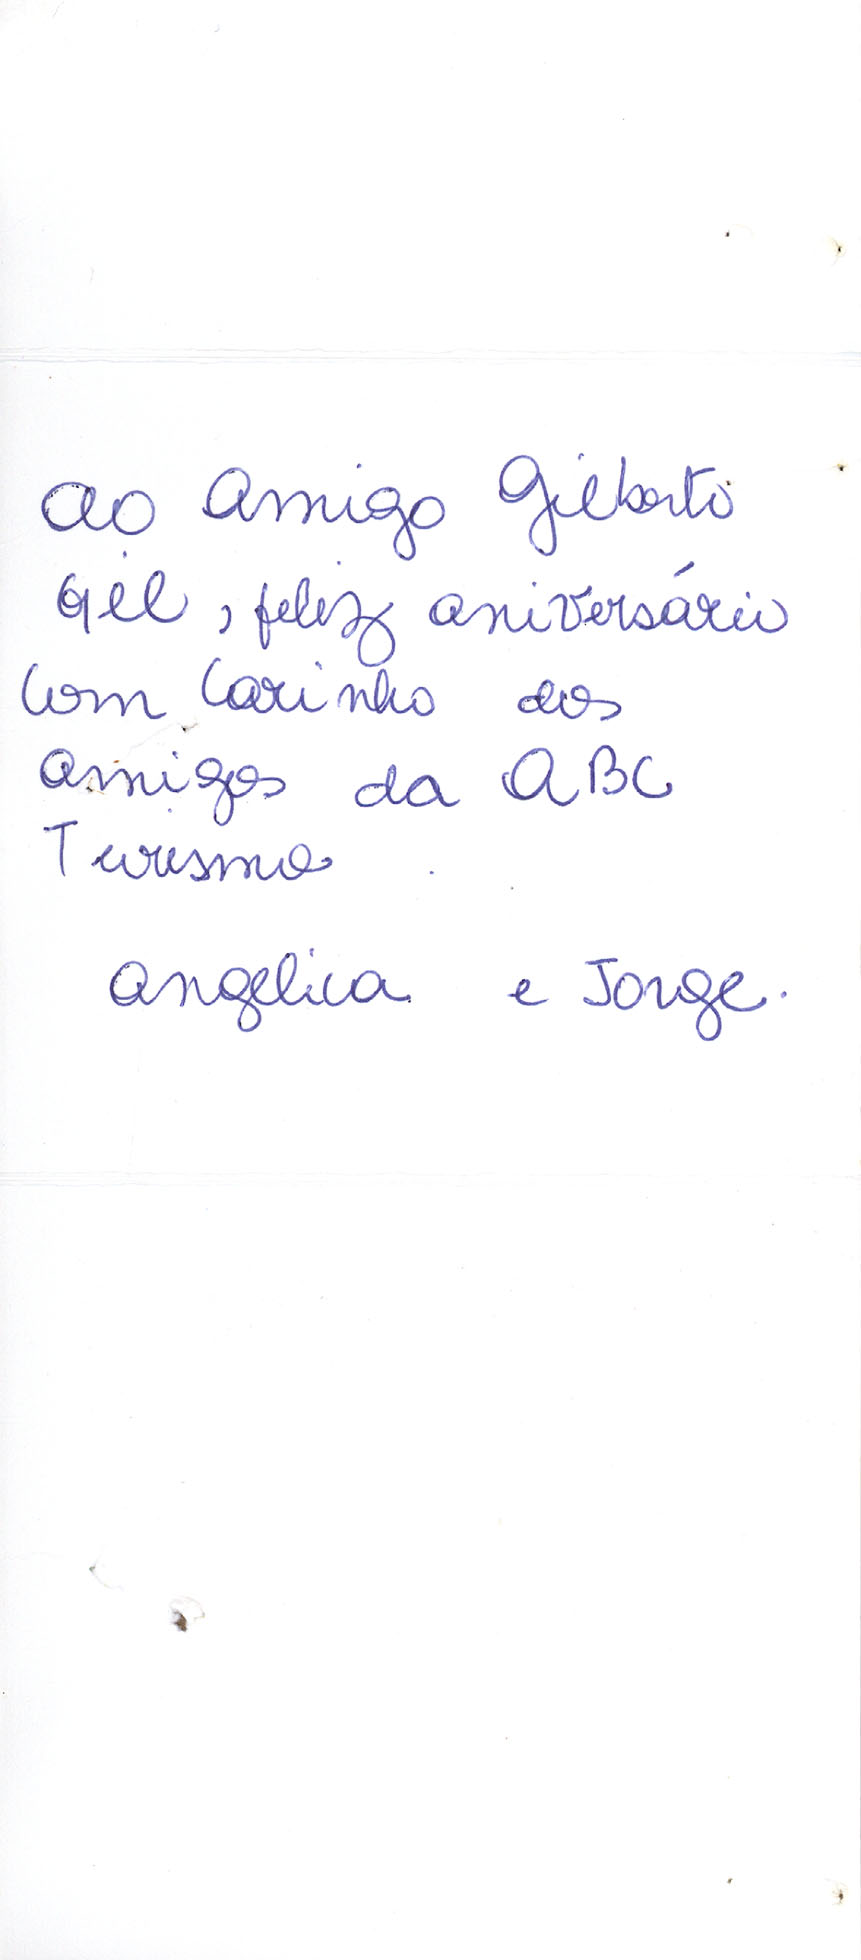 ao amigo Gilberto
Gil, feliz aniversário
Com Carinho dos
amigos da ABC
Turismo.
Angelica e Jorge.